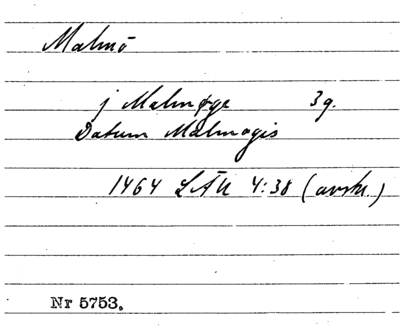 Malmö
j Malmøge 3g.
Datum Malmøgis
1464 LÄU 4:38 (avskr.)
Nr 5753.